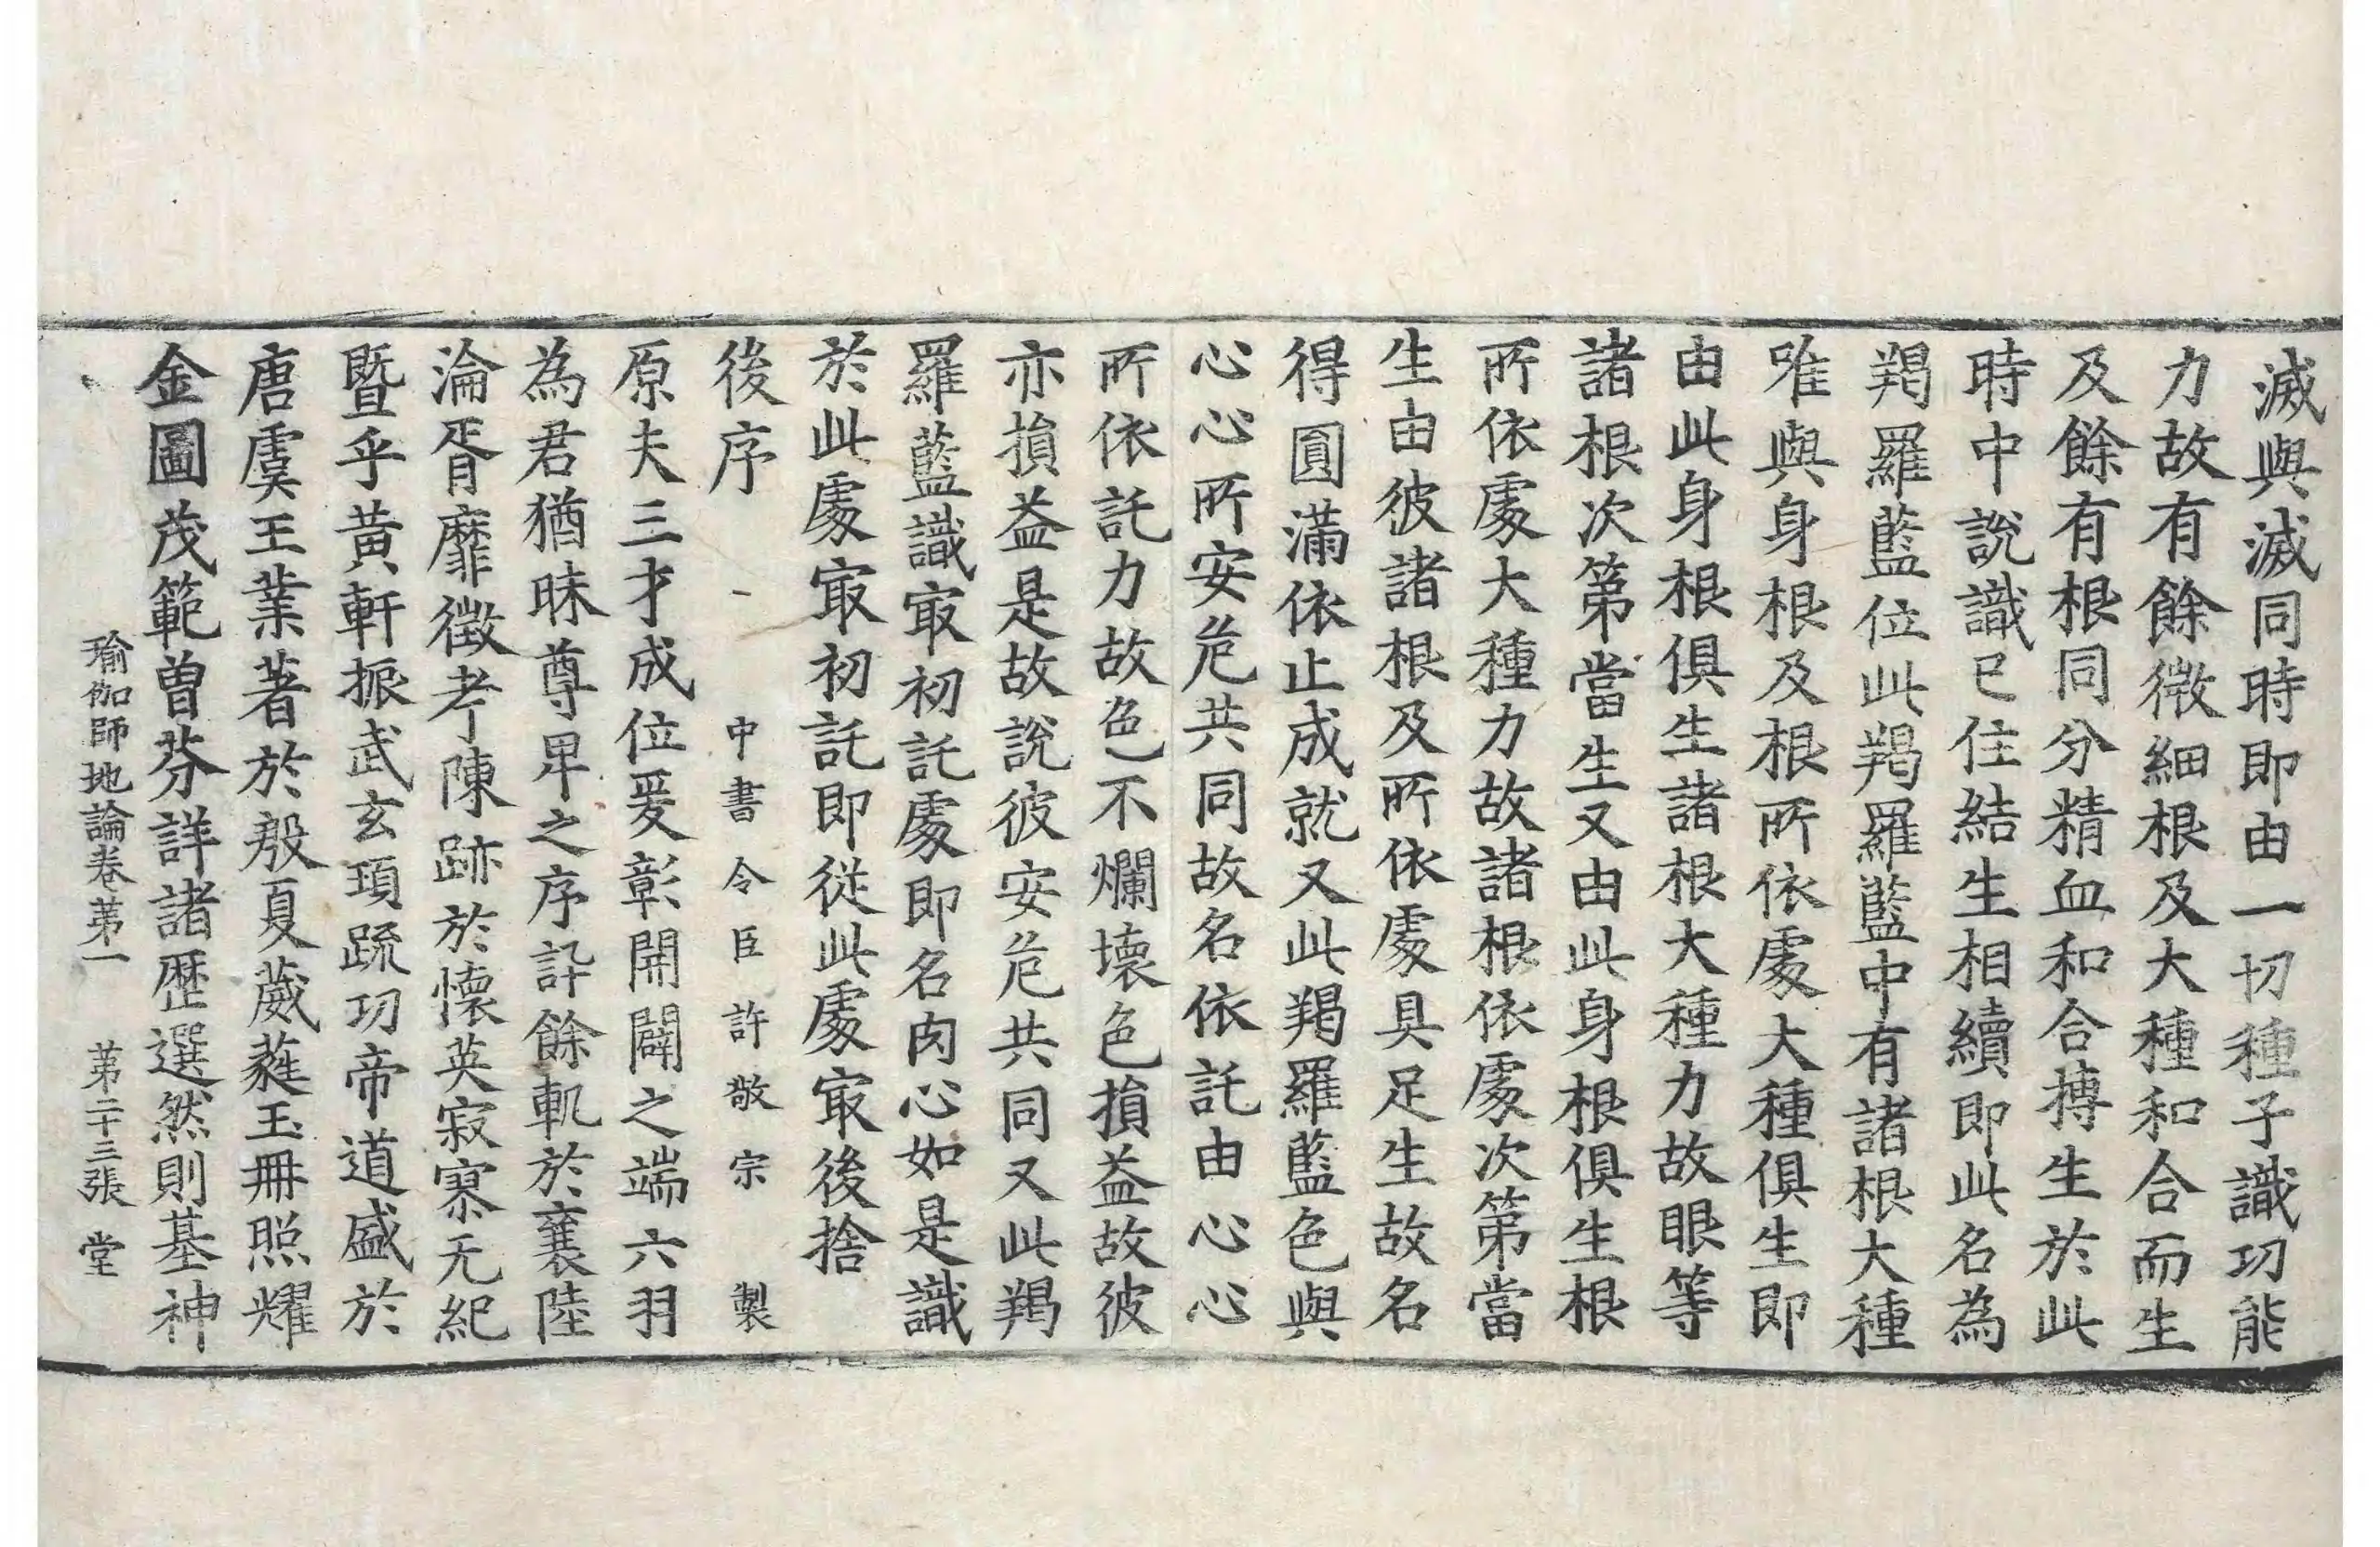 滅與滅同時即由一切種子識功能
力故有餘微細根及大種和合而生
及餘有根同分精血和合摶生於此
時中說識已住結生相續即此名為
羯羅藍位此羯羅藍中有諸根大種
唯與身根及根所依處大種俱生即
由此身根俱生諸根大種力故眼等
諸根次第當生又由此身根俱生根
所依處大種力故諸根依處次第當
生由彼諸根及所依處具足生故名
得圓滿依止成就又此羯羅藍色與
心心所安危共同故名依託由心心
所依託力故色不爛壞色損益故彼
亦損益是故說彼安危共同又此羯
羅藍識冣初託處即名肉心如是識
於此處冣初託即從此處冣後捨
後序
中書令臣許敬宗製
原夫三才成位爰彰開闢之端六羽
為君猶昧尊卑之序訃餘軌於襄陸
淪胥靡徵考陳跡於懷英寂寥无紀
暨乎黃軒振武玄頊疏功帝道盛於
唐虞王業著於殷夏葳蕤玉冊照耀
金圖茂範曾芬詳諸歷選然則基神
瑜伽師地論卷第一 第二十三張 堂